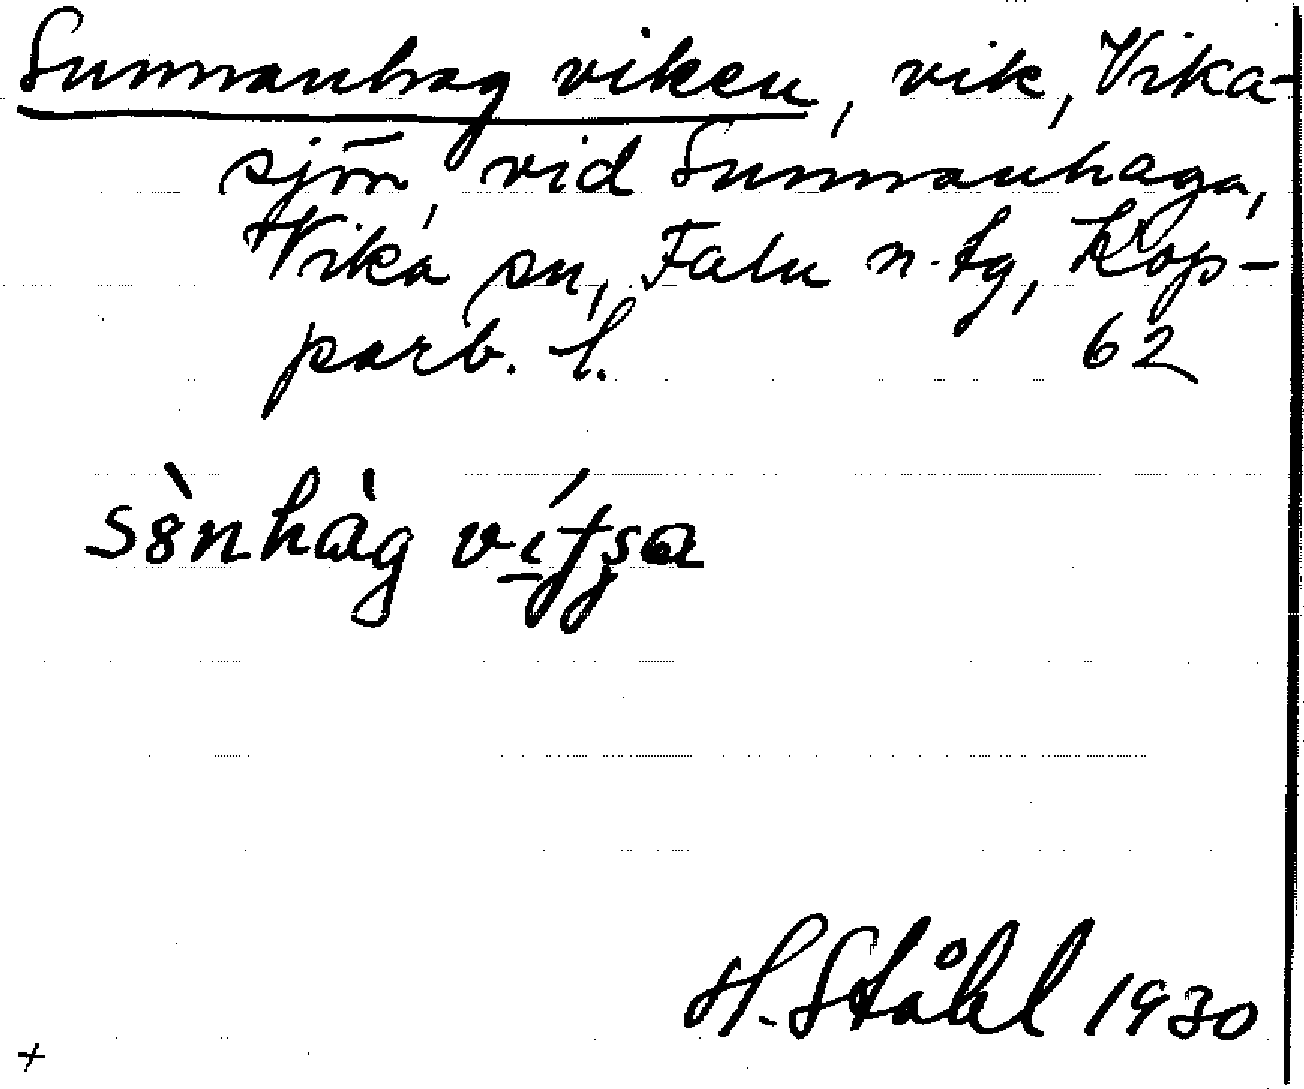 Sunnanhag viken, vik, Vika-
sjön, vid Sunnanhaga,
Vika sn, Falu n. tg, Kop-
parb. l. 62
H. Ståhl 1930
+